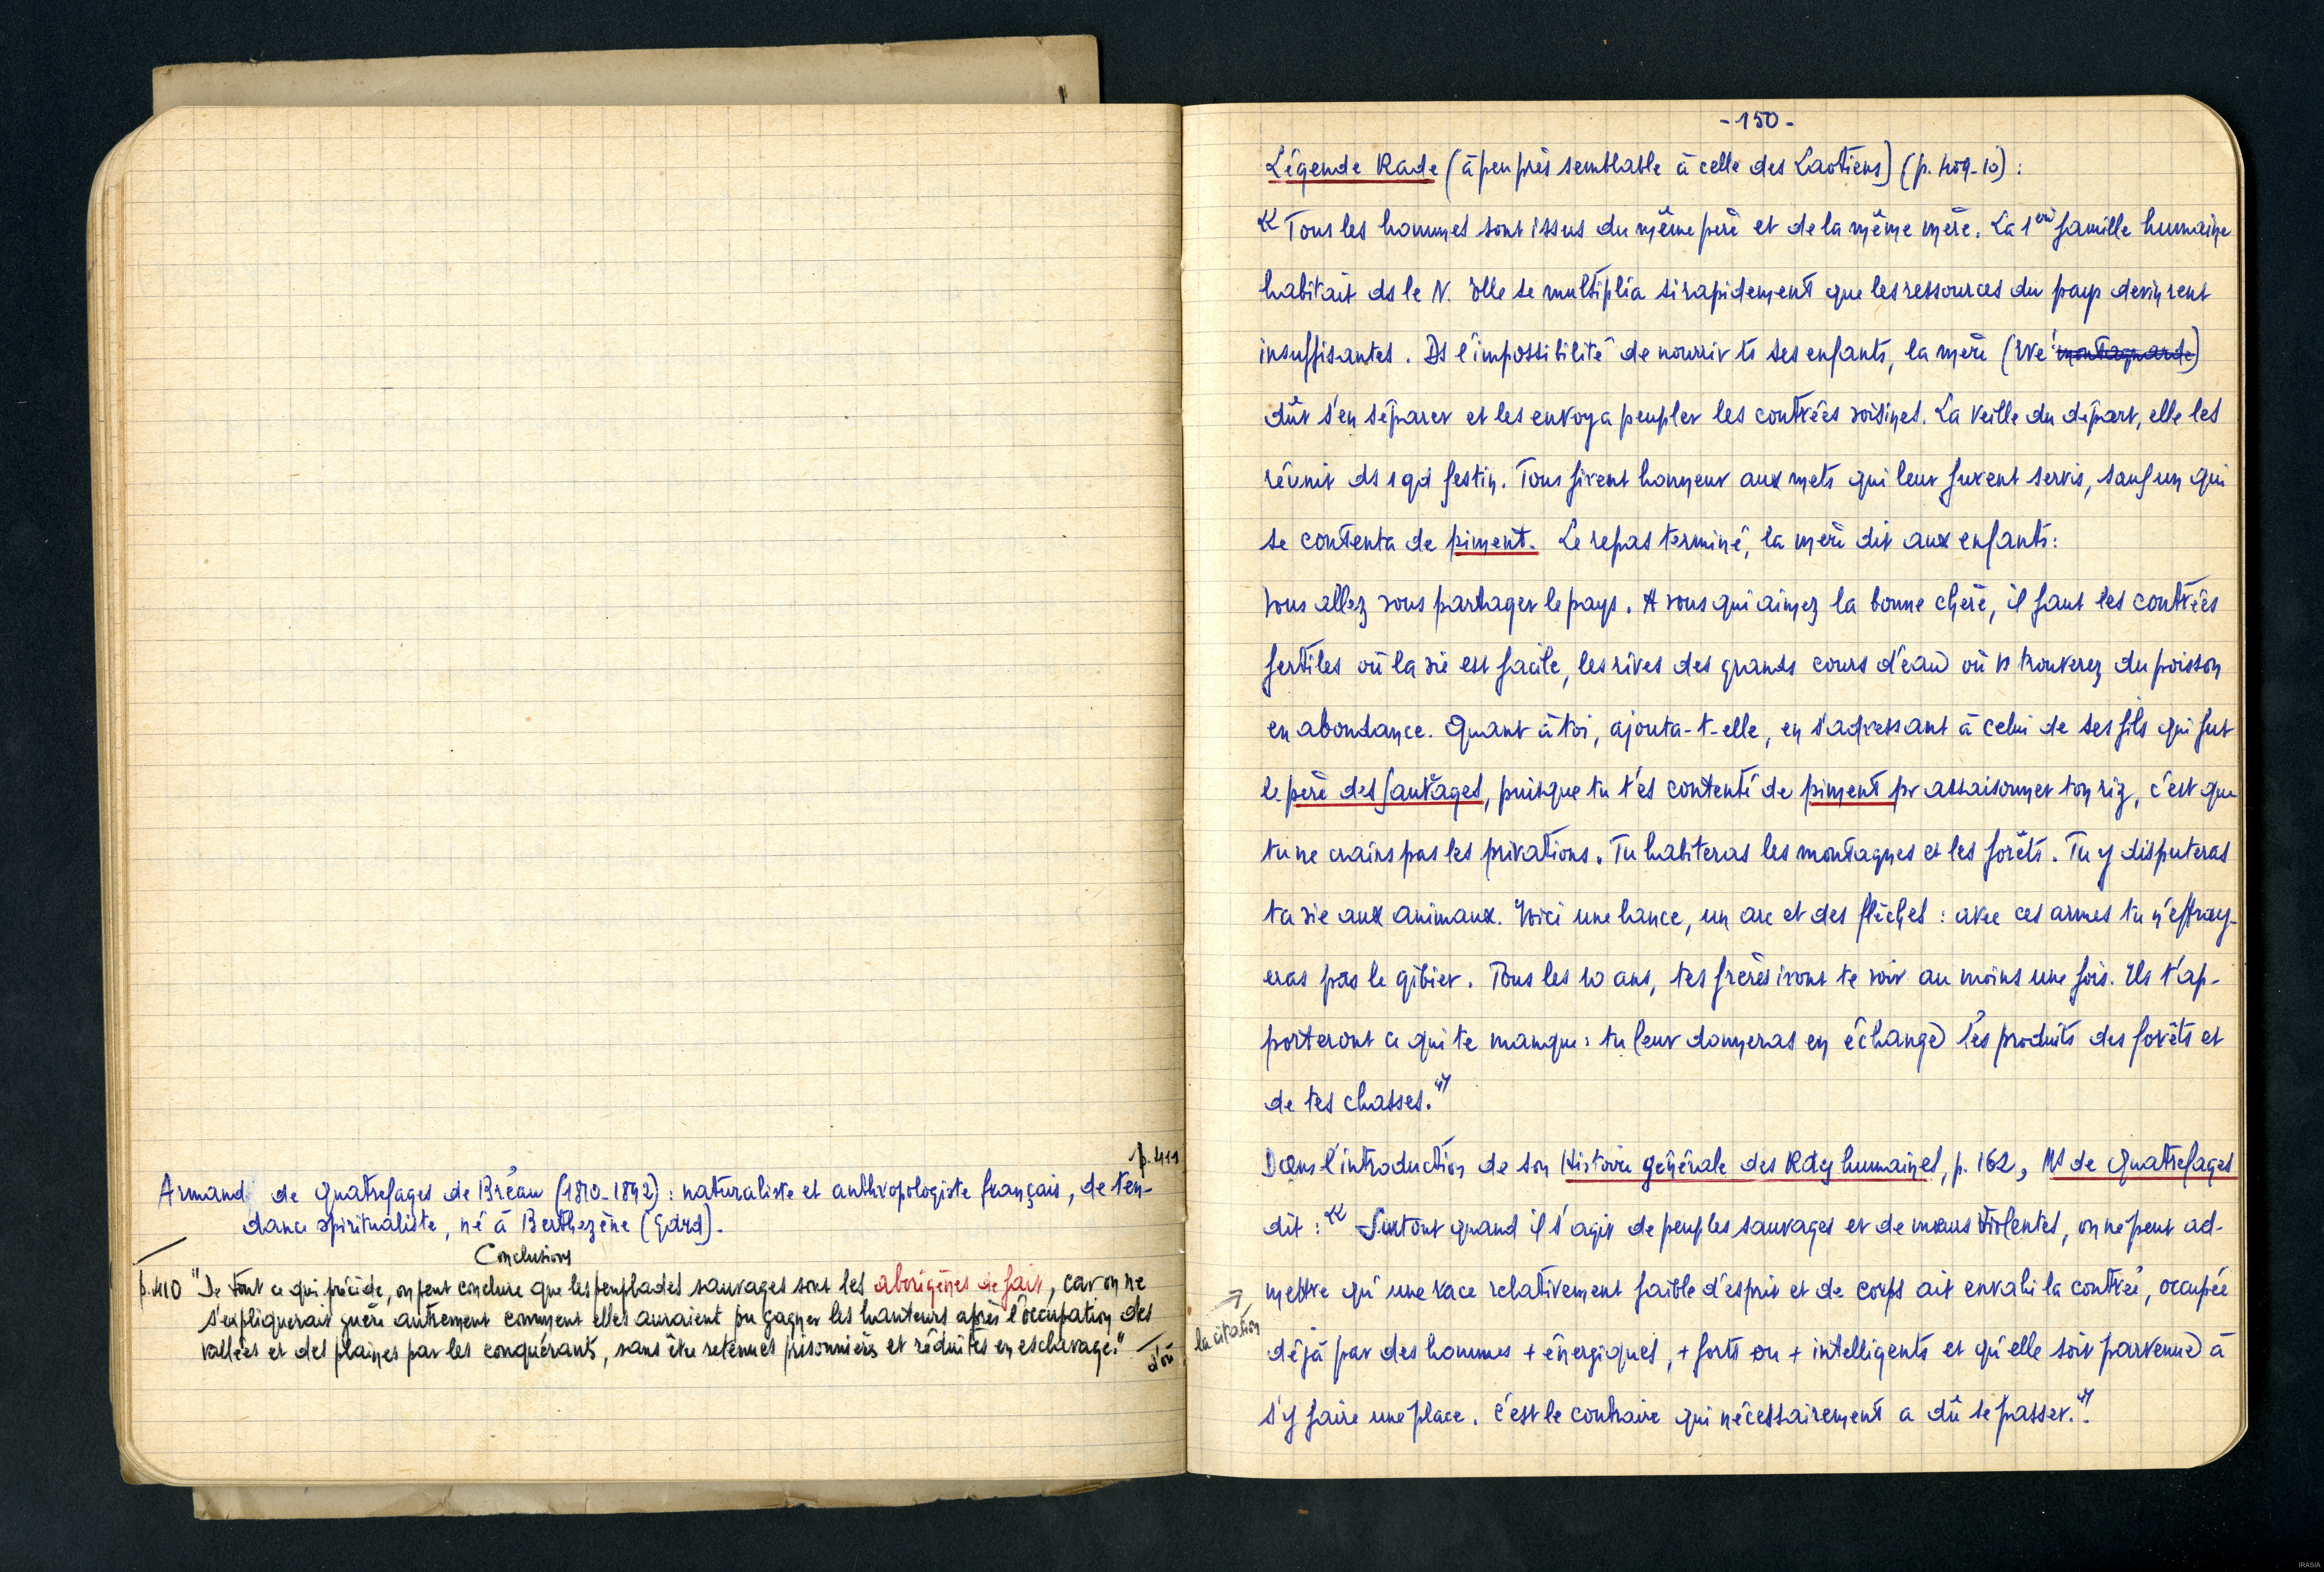 p. 411
Armand de Quatrefages de Bréau (1810-1892) : naturaliste et anthropologiste français, de ten-
dance spiritualiste, né à Berthezène (Gard).
Conclusions
p. 410 "De tout ce qui précède, on peut conclure que les peuplades sauvages sont les aborigènes de fait, car on ne
s'expliquerait guère autrement comment elles auraient pu gagner les hauteurs après l'occupation des
vallées et des plaines par les conquérants, sans être retenues prisonnières et réduites en esclavage."
d'où
la citation
- 150 -
Légende Rade (à peu près semblable à celle des Laotiens) (p. 409-10) :
« Tous les hommes sont issus du même père et de la même mère. La 1ère famille humaine
habitait ds le N. Elle se multiplia si rapidement que les ressources du pays devinrent
insuffisantes. Ds l'impossibilité de nourrir ts ses enfants, la mère (Eve montagnarde)
dût s'en séparer et les envoya peupler les contrées voisines. La veille du départ, elle les
réunit ds 1 gd festin. Tous firent honneur aux mets qui leur furent servis, sauf un qui
se contenta de piment. Le repas terminé, la mère dit aux enfants :
Vous allez vous partager le pays. A vous qui aimez la bonne chère, il faut les contrées
fertiles où la vie est facile, les rives des grands cours d'eau où vs trouverez du poisson
en abondance. Quant à toi, ajouta-t-elle, en s'adressant à celui de ses fils qui fut
le père des Sauvages, puisque tu t'es contenté de piment pr assaisonner ton riz, c'est que
tu ne crains pas les privations. Tu habiteras les montagnes et les forêts. Tu y disputeras
ta vie aux animaux. Voici une lance, un arc et des flèches : avec ces armes tu n'effray-
eras pas le gibier. Tous les 10 ans, tes frères iront te voir au moins une fois. Ils t'ap-
porteront ce qui te manque : tu leur donneras en échange les produits des forêts et
de tes chasses. »
Dans l'introduction de son Histoire générale des Races humaines, p. 162, Mr de Quatrefages
dit : « Surtout quand il s'agit de peuples sauvages et de mœurs violentes, on ne peut ad-
mettre qu'une race relativement faible d'esprit et de corps ait envahi la contrée, occupée
déjà par des hommes + énergiques, + forts ou + intelligents et qu'elle soit parvenue à
s'y faire une place. C'est le contraire qui nécessairement a dû se passer. ».
IRASIA